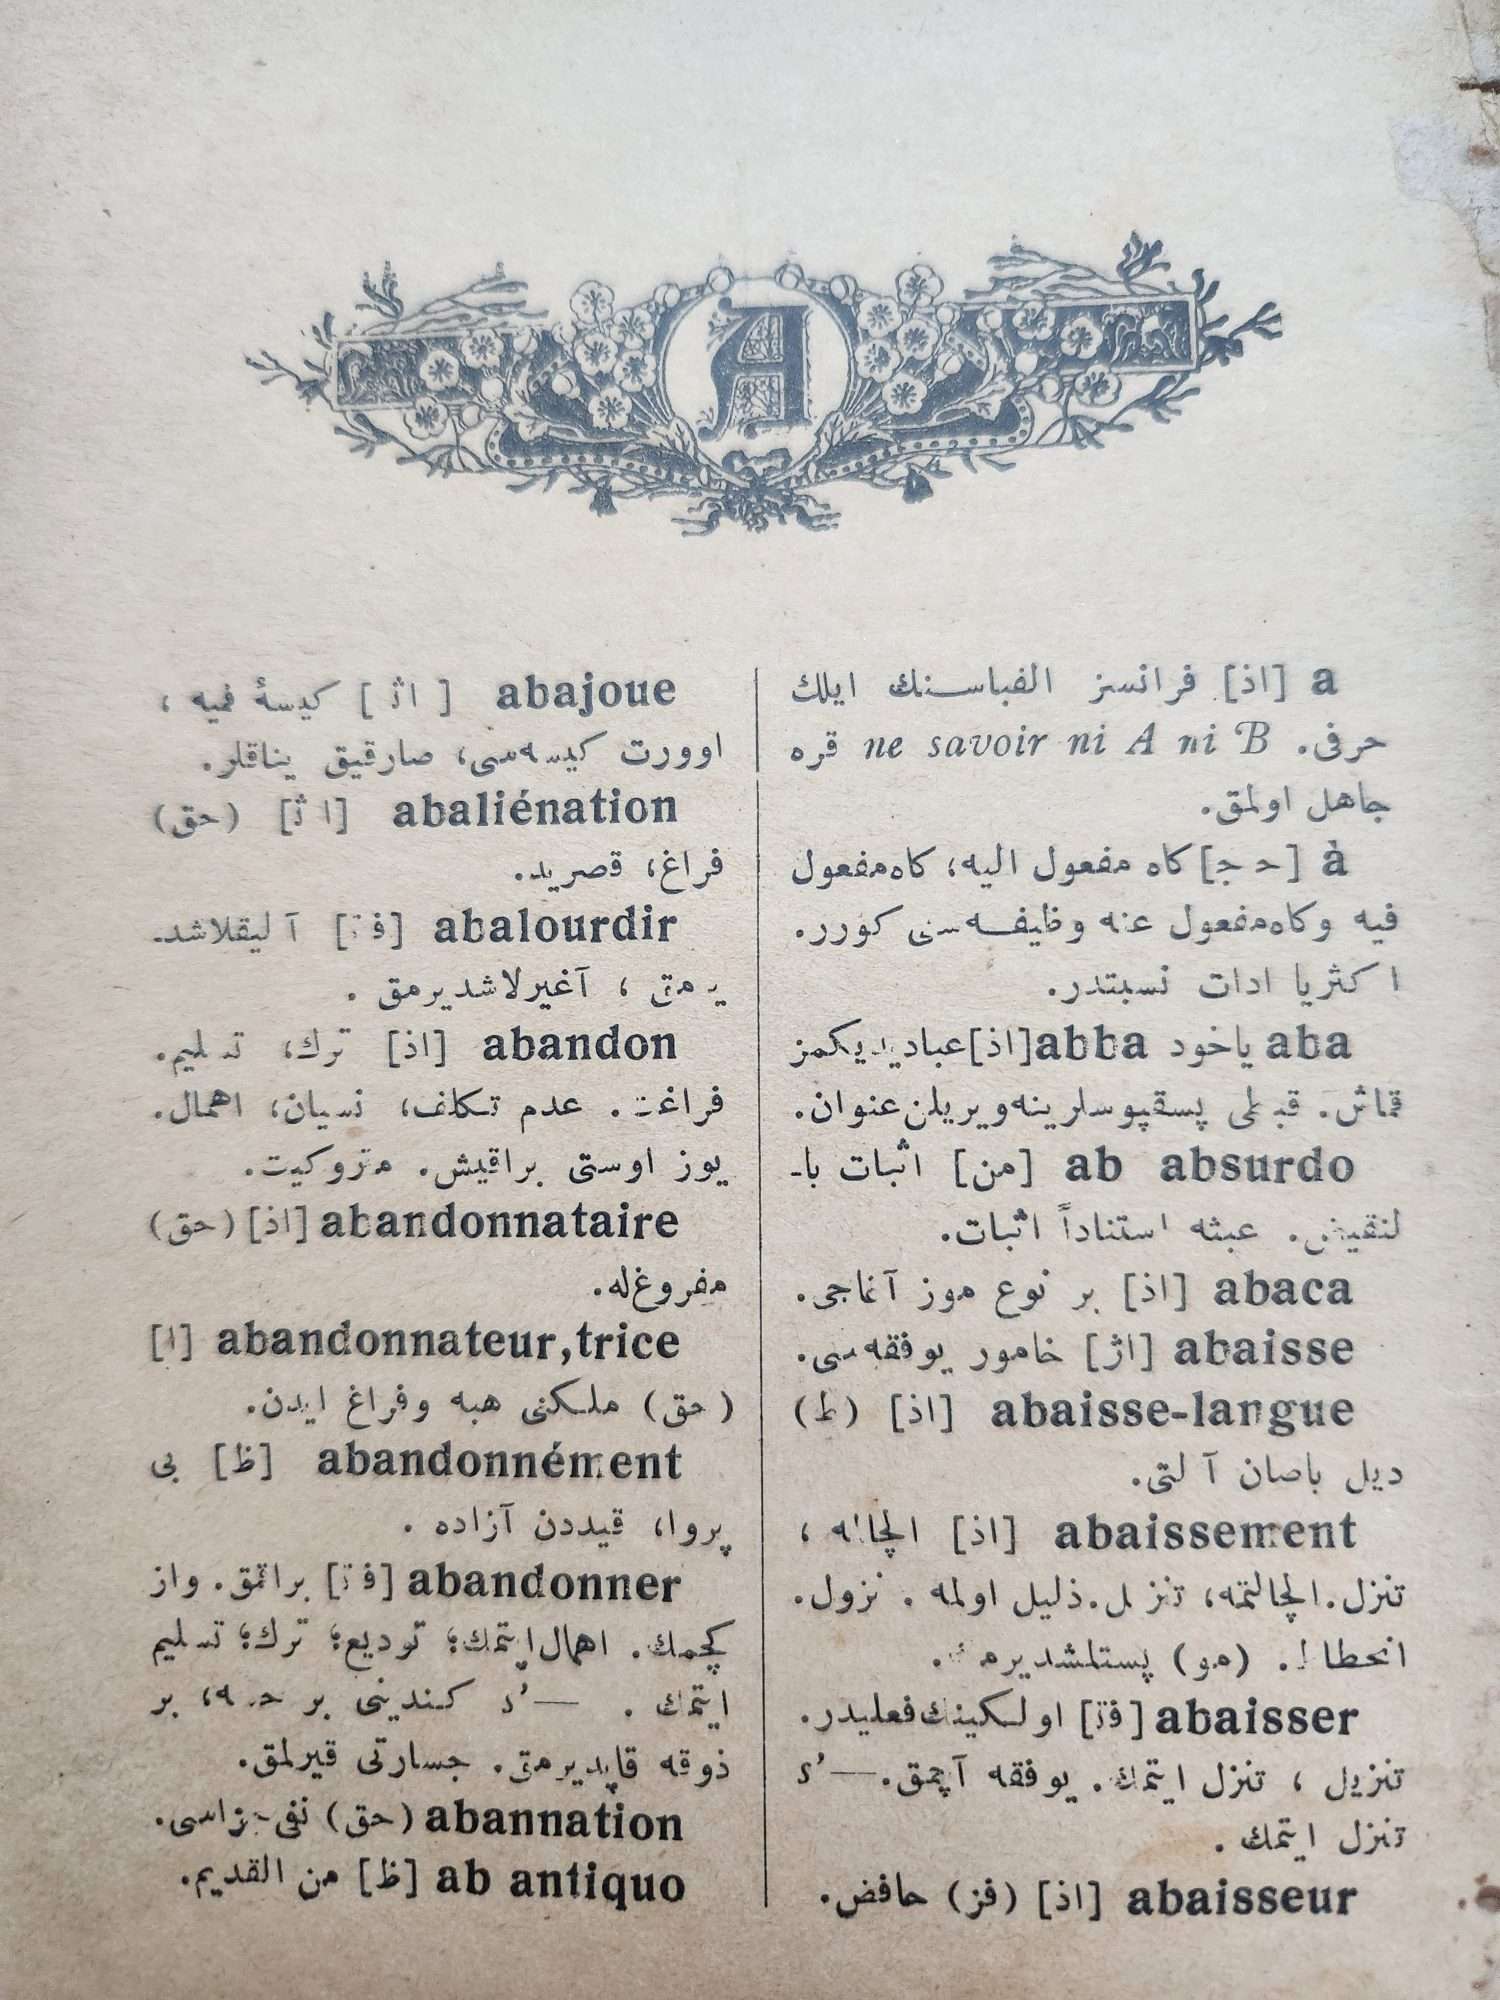 A
a [اذ] فرانسز الفباسنك ايلك
حرفى. ne savoir ni A ni B قره
جاهل اولمق.
à [حج] كاه مفعول اليه، كاه مفعول
فيه وكاه مفعول عنه وظيفه‌سنى كورر.
اكثريا ادات نسبتدر.
aba ياخود abba [اذ] عبا ديديكمز
قماش. قبطى پسقپوسلرينه ويريلن عنوان.
ab absurdo [من] اثبات با-
لنقيض. عبثه استناداً اثبات.
abaca [اذ] بر نوع موز آغاجى.
abaisse [اژ] خامور يوفقه‌سى.
abaisse-langue [اذ] (ط)
ديل باصان آلتى.
abaissement [اذ] الچالمه،
تنزل. الچالتمه، تنزيل. ذليل اولمه. نزول.
انحطاط. (مو) پستلشديرمه.
abaisser [فژ] اولكينك فعليدر.
تنزيل، تنزل ايتمك. يوفقه آچمق. —'s
تنزل ايتمك.
abaisseur [اذ] (فز) حافض.
abajoue [اث] كيسهٔ فميه،
اوورت كيسه‌سى، صارقيق يناقلر.
abaliénation [اث] (حق)
فراغ، قصريد.
abalourdir [فژ] آليقلاشد-
يرمق، آغيرلاشديرمق.
abandon [اذ] ترك، تسليم.
فراغت. عدم تكلف، نسيان، اهمال.
يوز اوستى براقيش. متروكيت.
abandonnataire [اذ] (حق)
مفروغ‌له.
abandonnateur,trice [ا]
(حق) ملكنى هبه وفراغ ايدن.
abandonnément [ظ] بى
پروا، قيددن آزاده.
abandonner [فژ] براقمق. واز
كچمك. اهمال ايتمك؛ توديع؛ ترك؛ تسليم
ايتمك. —'s كندينى بر حسه، بر
ذوقه قاپديرمق. جسارتى قيرلمق.
abannation (حق) نفى جزاسى.
ab antiquo [ظ] من القديم.